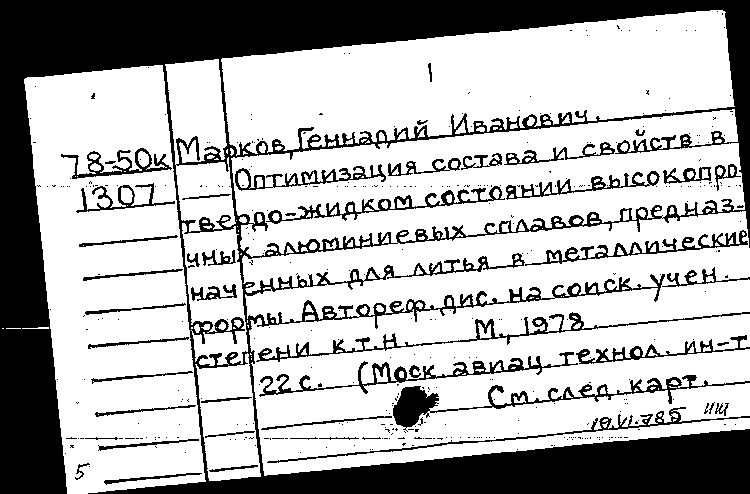 1
78-50к Марков, Геннадий Иванович.
1307 Оптимизация состава и свойств в
твердо-жидком состоянии высокопро-
чных алюминиевых сплавов, предназ-
наченных для литья в металлические
формы. Автореф. дис. на соиск. учен.
степени к.т.н. М., 1978.
22 с. (Моск. авиац. технол. ин-т
См. след. карт.
5